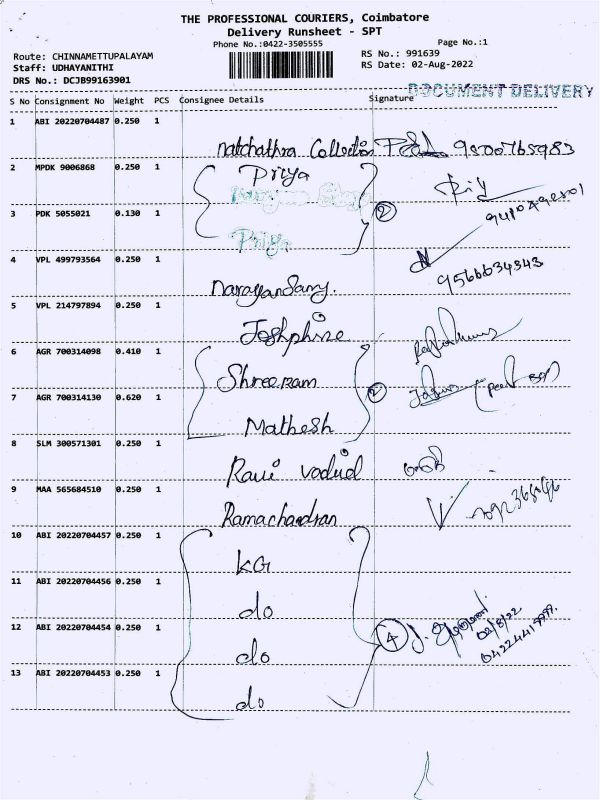 THE PROFESSIONAL COURIERS, Coimbatore
Delivery Runsheet - SPT
Phone No.:0422-3505555
Page No.:1
Route: CHINNAMETTUPALAYAM
RS No.: 991639
Staff: UDHAYANITHI
RS Date: 02-Aug-2022
DRS No.: DCJB99163901
DOCUMENT DELIVERY
S No Consignment No Weight PCS Consignee Details Signature
1 ABI 20220704487 0.250 1
natchathra Collection 9500765983
2 MPDK 9006868 0.250 1
Priya
3 PDK 5055021 0.130 1
2
Priya
4 VPL 499793564 0.250 1
9566634343
Narayansamy.
5 VPL 214797894 0.250 1
Joshphine
6 AGR 700314098 0.410 1
Shreeram
7 AGR 700314130 0.620 1
2
Mathesh
8 SLM 300571301 0.250 1
Ravi vadivel
9 MAA 565684510 0.250 1
Ramachandran
10 ABI 20220704457 0.250 1
KG
11 ABI 20220704456 0.250 1
do
12 ABI 20220704454 0.250 1
4
02/8/22
do
13 ABI 20220704453 0.250 1
do